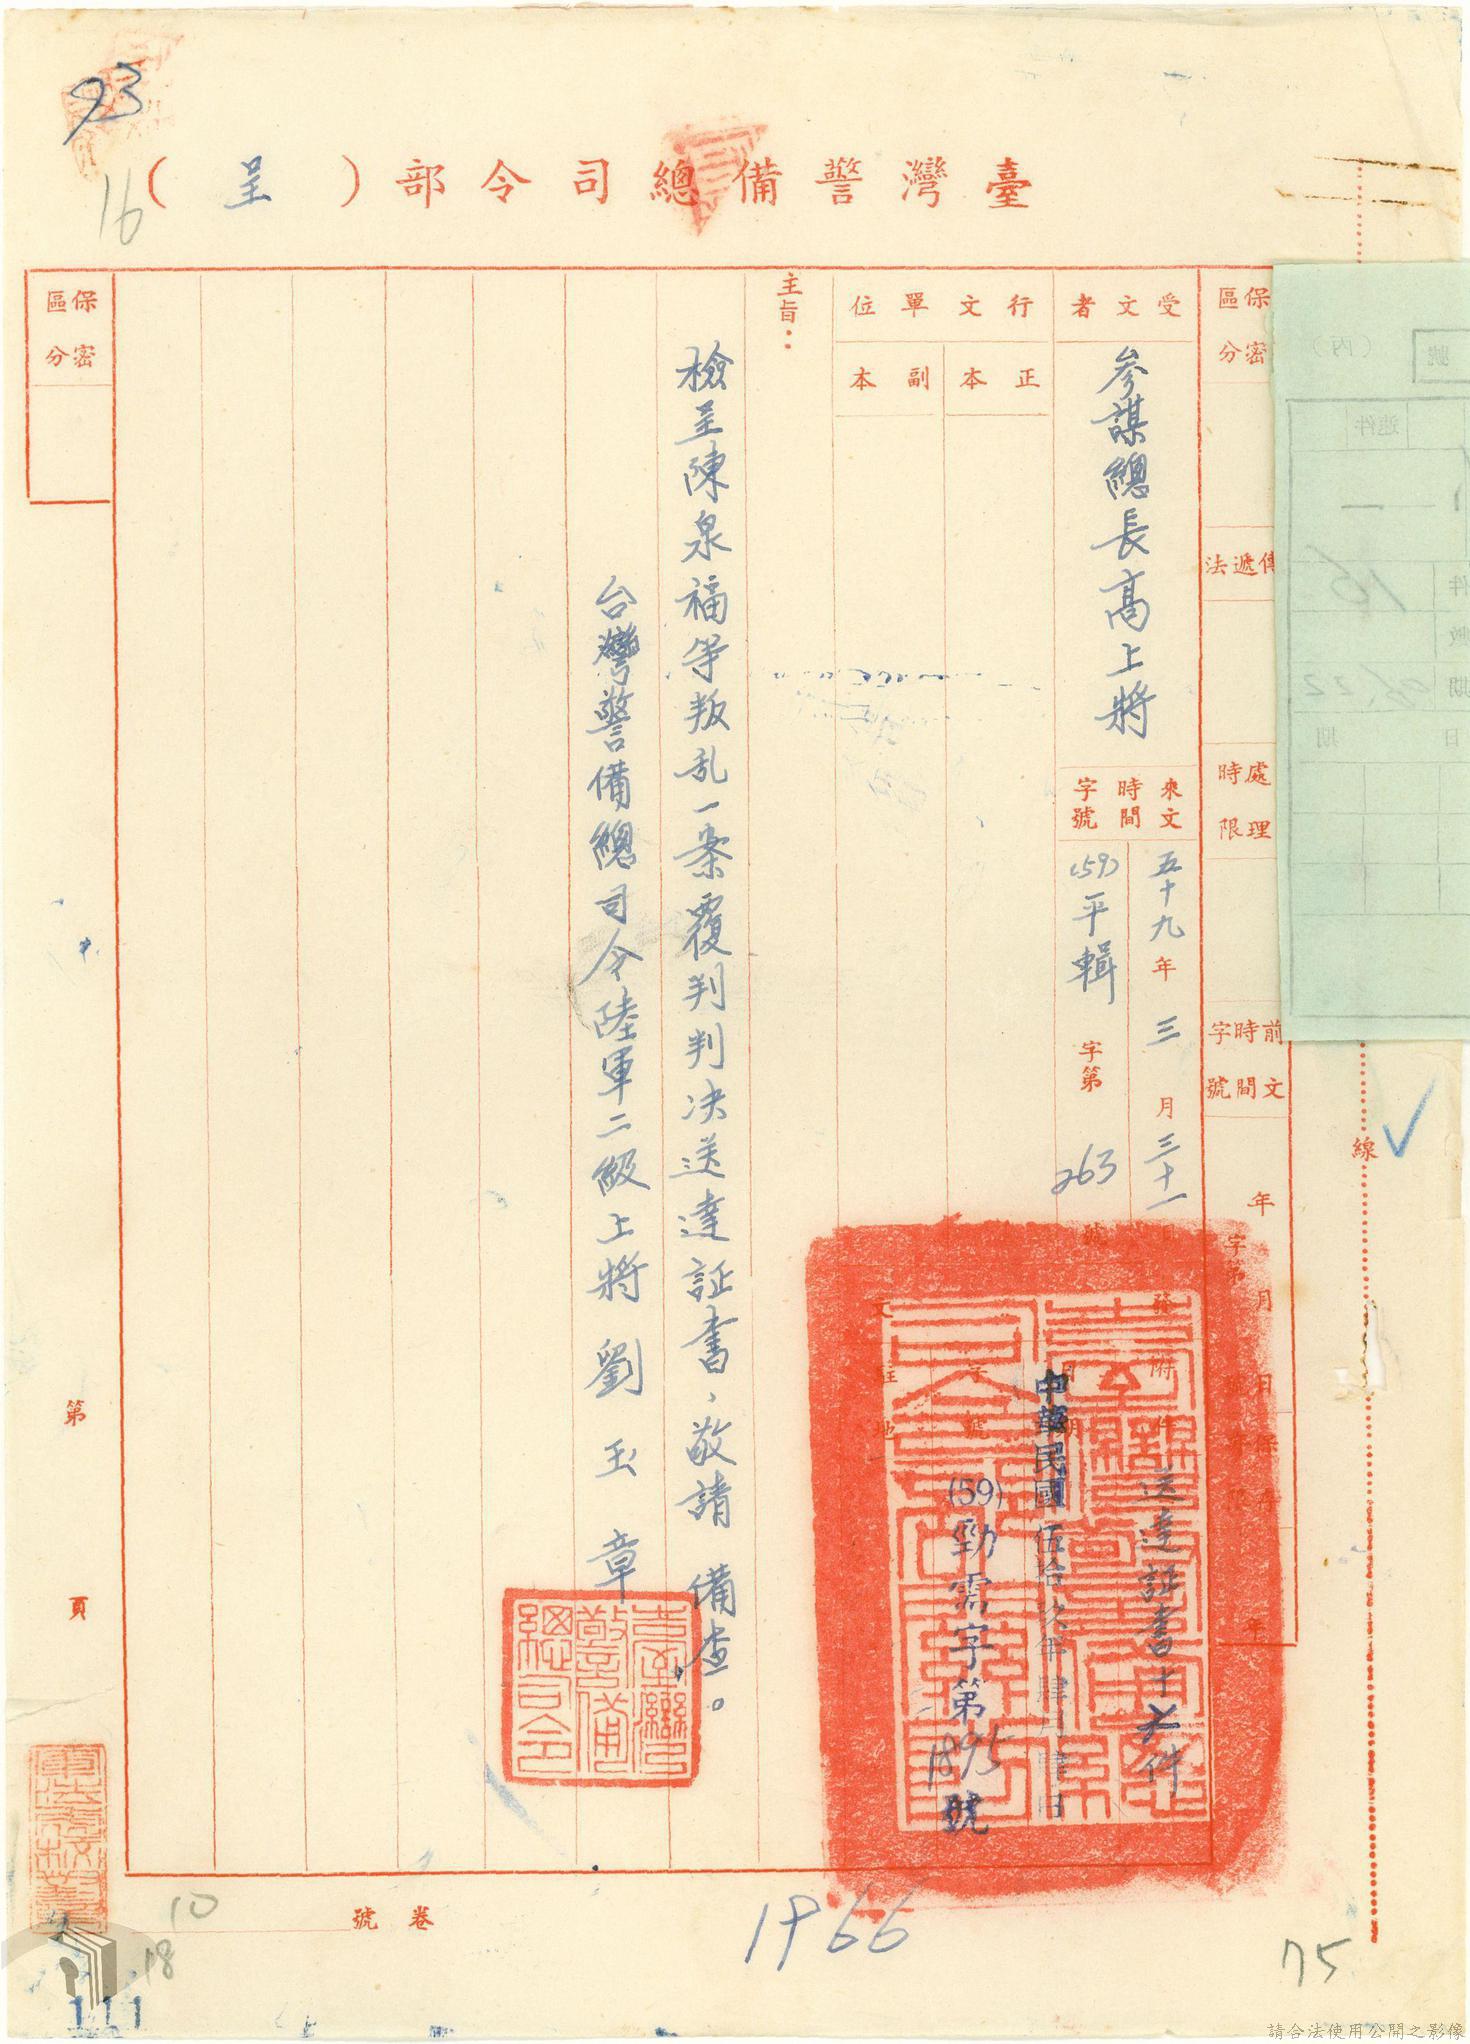 93
16
臺灣警備總司令部（呈）
保密區分
傳遞法
處理時限
前文時間字號
年 月 日
字第
受文者
參謀總長高上將
來文時間
五十九年三月三十一日
字號
(59)平輯字第263號
行文單位
正本
副本
發文
附件
送達証書十六件
日期
中華民國伍拾玖年肆月 日
字號
(59)勁需字第1895號
駐地
主旨：
檢呈陳泉福等叛乱一案覆判判决送達証書，敬請備查。
台灣警備總司令陸軍二級上將劉玉章
臺灣警備總司令
保密區分
第 頁
卷號
線
10
18
111
1966
75
請合法使用公開之影像